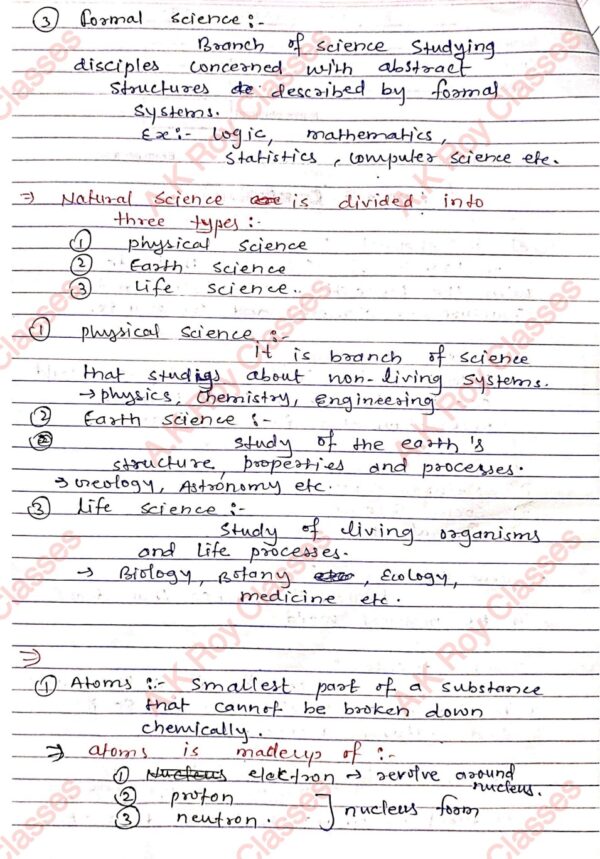 ③ formal science :-
Branch of science studying
disciples concerned with abstract
structures described by formal
systems.
Ex :- logic, mathematics,
statistics, computer science etc.
⇒ Natural science is divided into
three types :-
① physical science
② Earth science
③ Life science..
① physical science :-
It is branch of science
that studies about non-living systems.
→ physics, chemistry, engineering
② Earth science :-
②
study of the earth's
structure, properties and processes.
→ Geology, Astronomy etc.
③ Life science :-
study of living organisms
and life processes.
→ Biology, Botany, Ecology,
medicine etc.
⇒
① Atoms :- smallest part of a substance
that cannot be broken down
chemically.
⇒ atoms is madeup of :-
① Nucleus elektron → revolve around
nucleus.
② proton
③ neutron. ] nucleus form
A.K Roy Classes